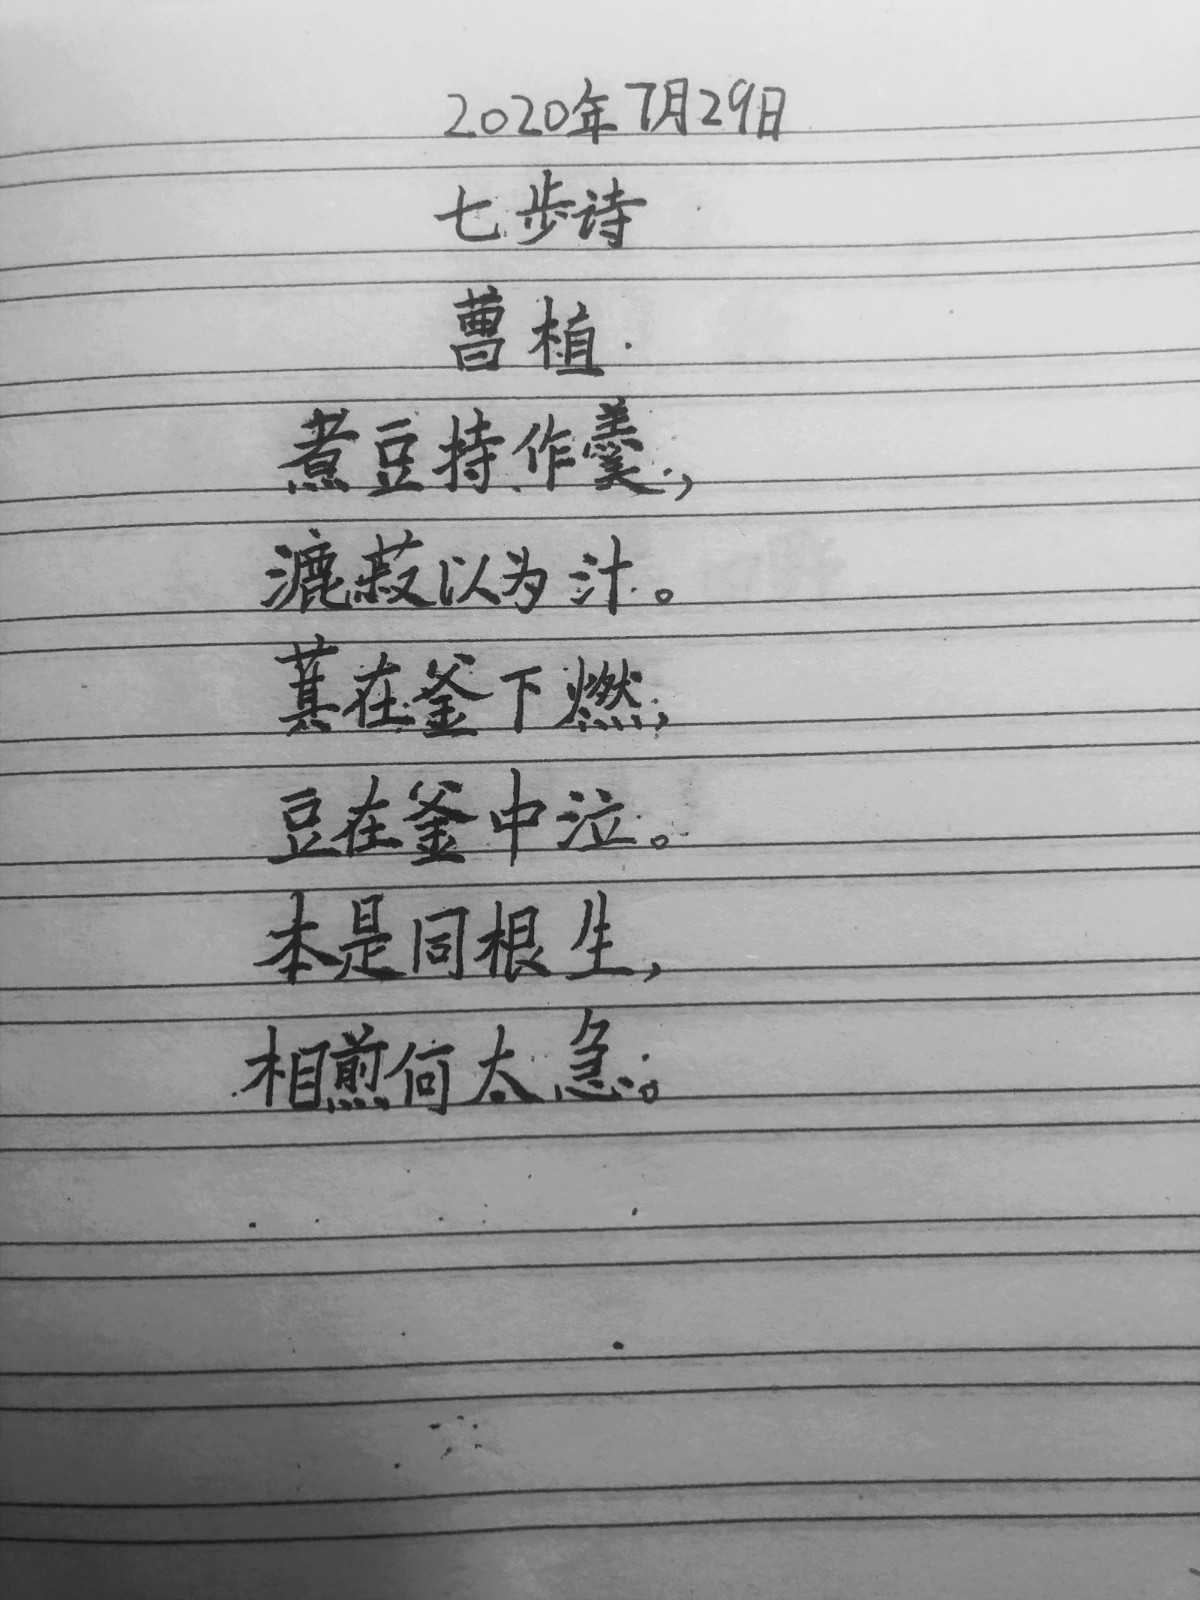 2020年7月29日
七步诗
曹植
煮豆持作羹,
漉菽以为汁。
萁在釜下燃,
豆在釜中泣。
本是同根生,
相煎何太急。